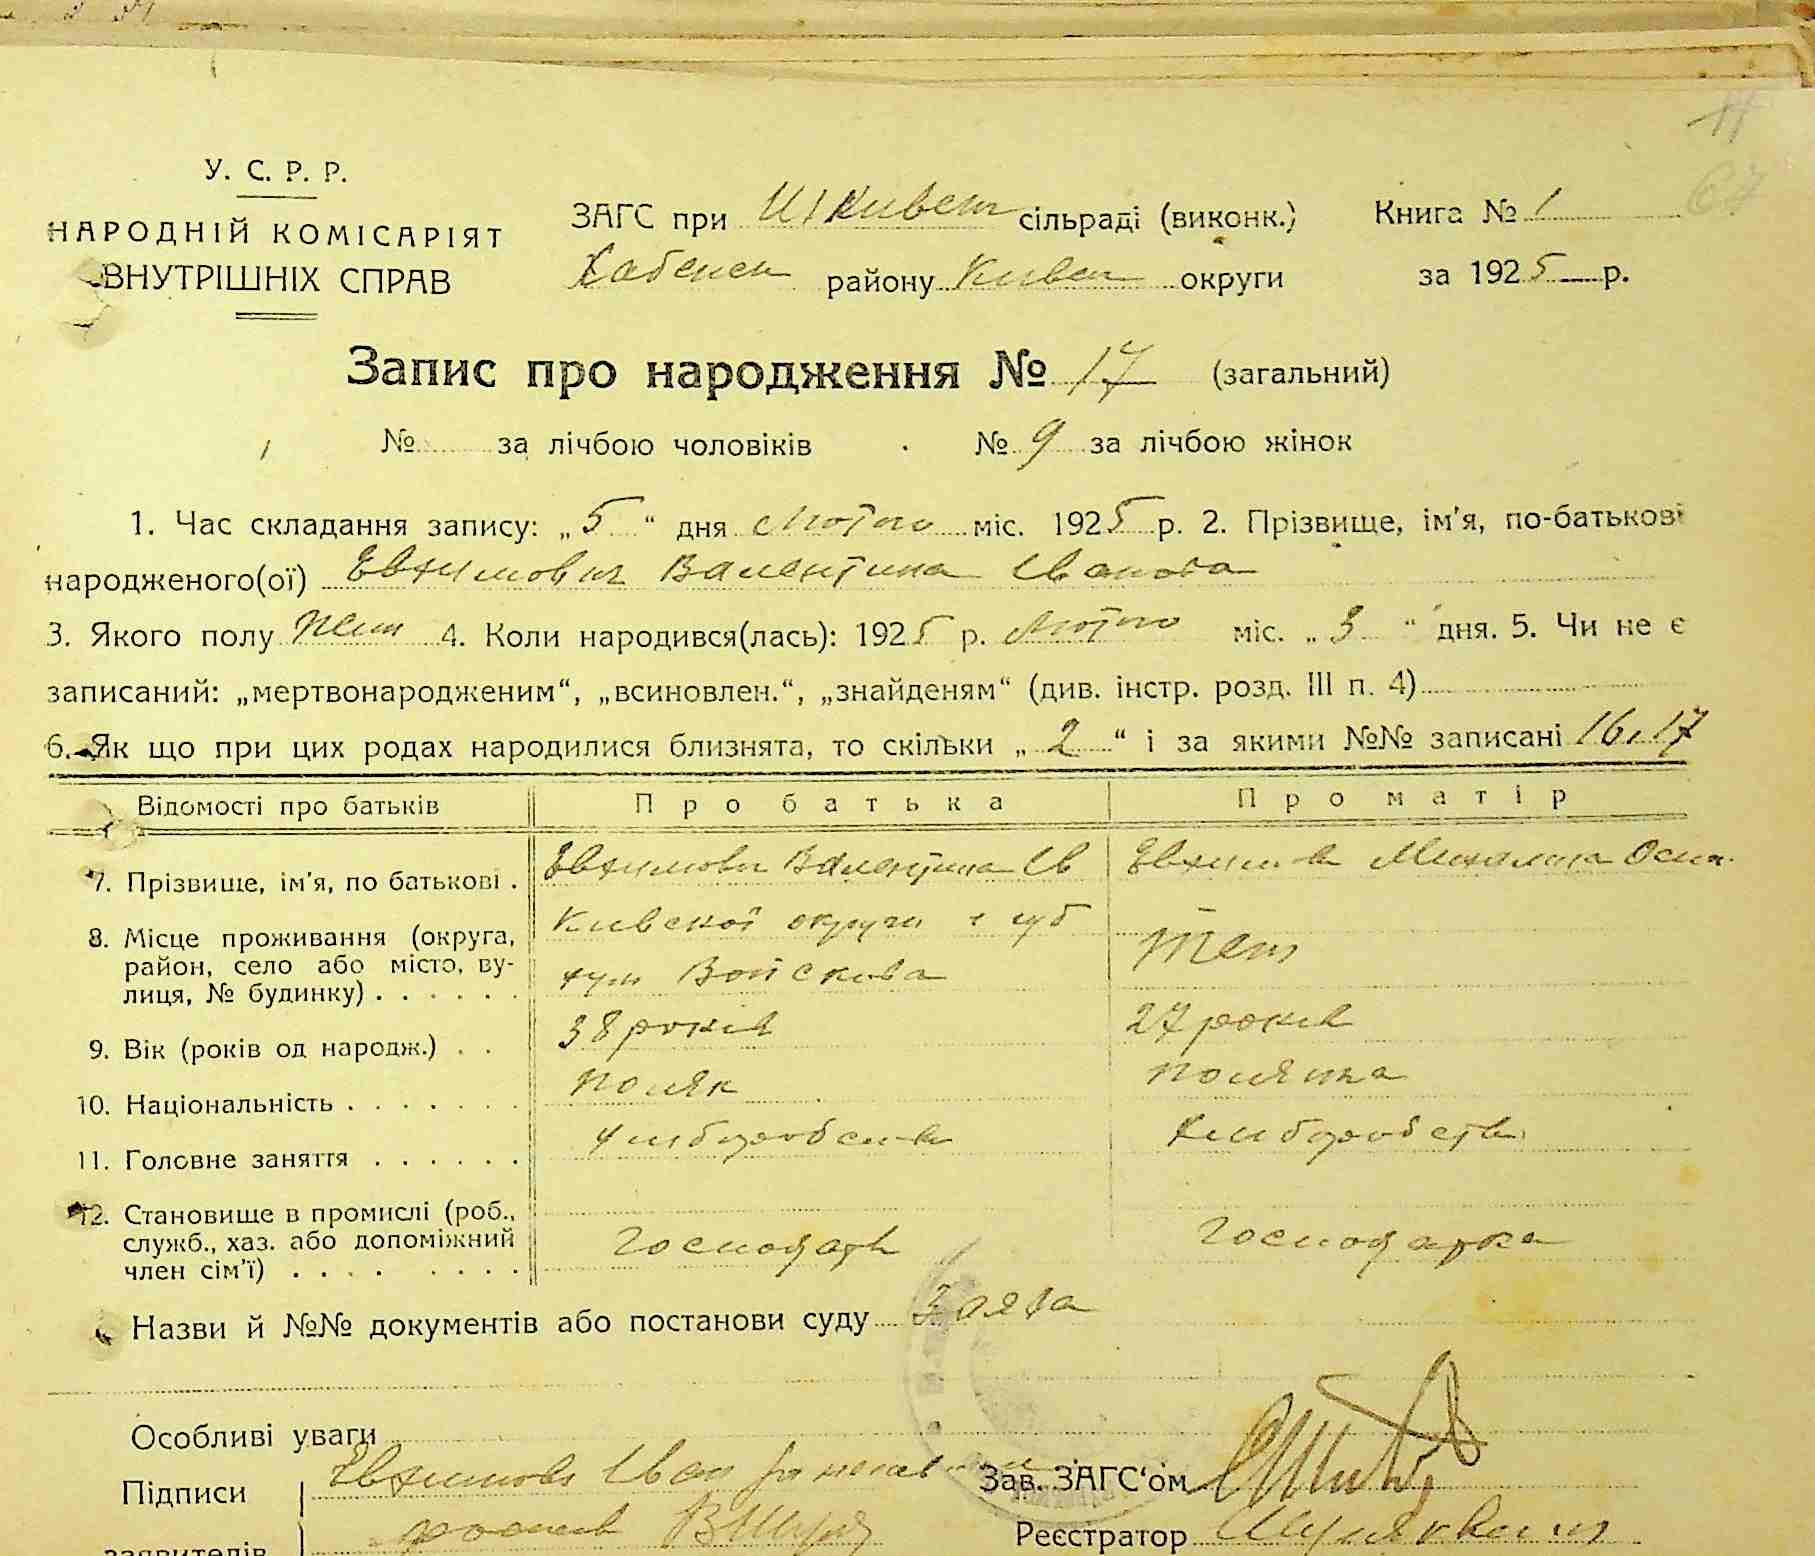 У. С. Р. Р.
НАРОДНІЙ КОМІСАРІЯТ
ВНУТРІШНІХ СПРАВ
ЗАГС при сільраді (виконк.) Книга № 1
району Киев округи за 1925 р.
Запис про народження № 17 (загальний)
№ за лічбою чоловіків № 9 за лічбою жінок
1. Час складання запису: „5“ дня Лютого міс. 1925 р. 2. Прізвище, ім'я, по-батькові
народженого(ої) Евхимович Валентина Іванова
3. Якого полу жен 4. Коли народився(лась): 1925 р. Лютого міс. „3“ дня. 5. Чи не є
записаний: „мертвонародженим“, „всиновлен.“, „знайденям“ (див. інстр. розд. III п. 4)
6. Як що при цих родах народилися близнята, то скільки „2“ і за якими №№ записані 16, 17
Відомості про батьків Про батька Про матір
7. Прізвище, ім'я, по батькові . Валентина Ів Михалина Осип.
8. Місце проживання (округа, район, село або місто, вулиця, № будинку) . . . . . . Киевской округи хут Войскова
9. Вік (років од народж.) . . 38 років 27 років
10. Національність . . . . . . . поляк полячка
11. Головне заняття . . . . . . хлиборобство
12. Становище в промислі (роб., служб., хаз. або допоміжний член сім'ї) . . . . . . . . Господарь Господарка
Назви й №№ документів або постанови суду Заява
Особливі уваги
Підписи Иван Зав. ЗАГС'ом
заявителів Реєстратор